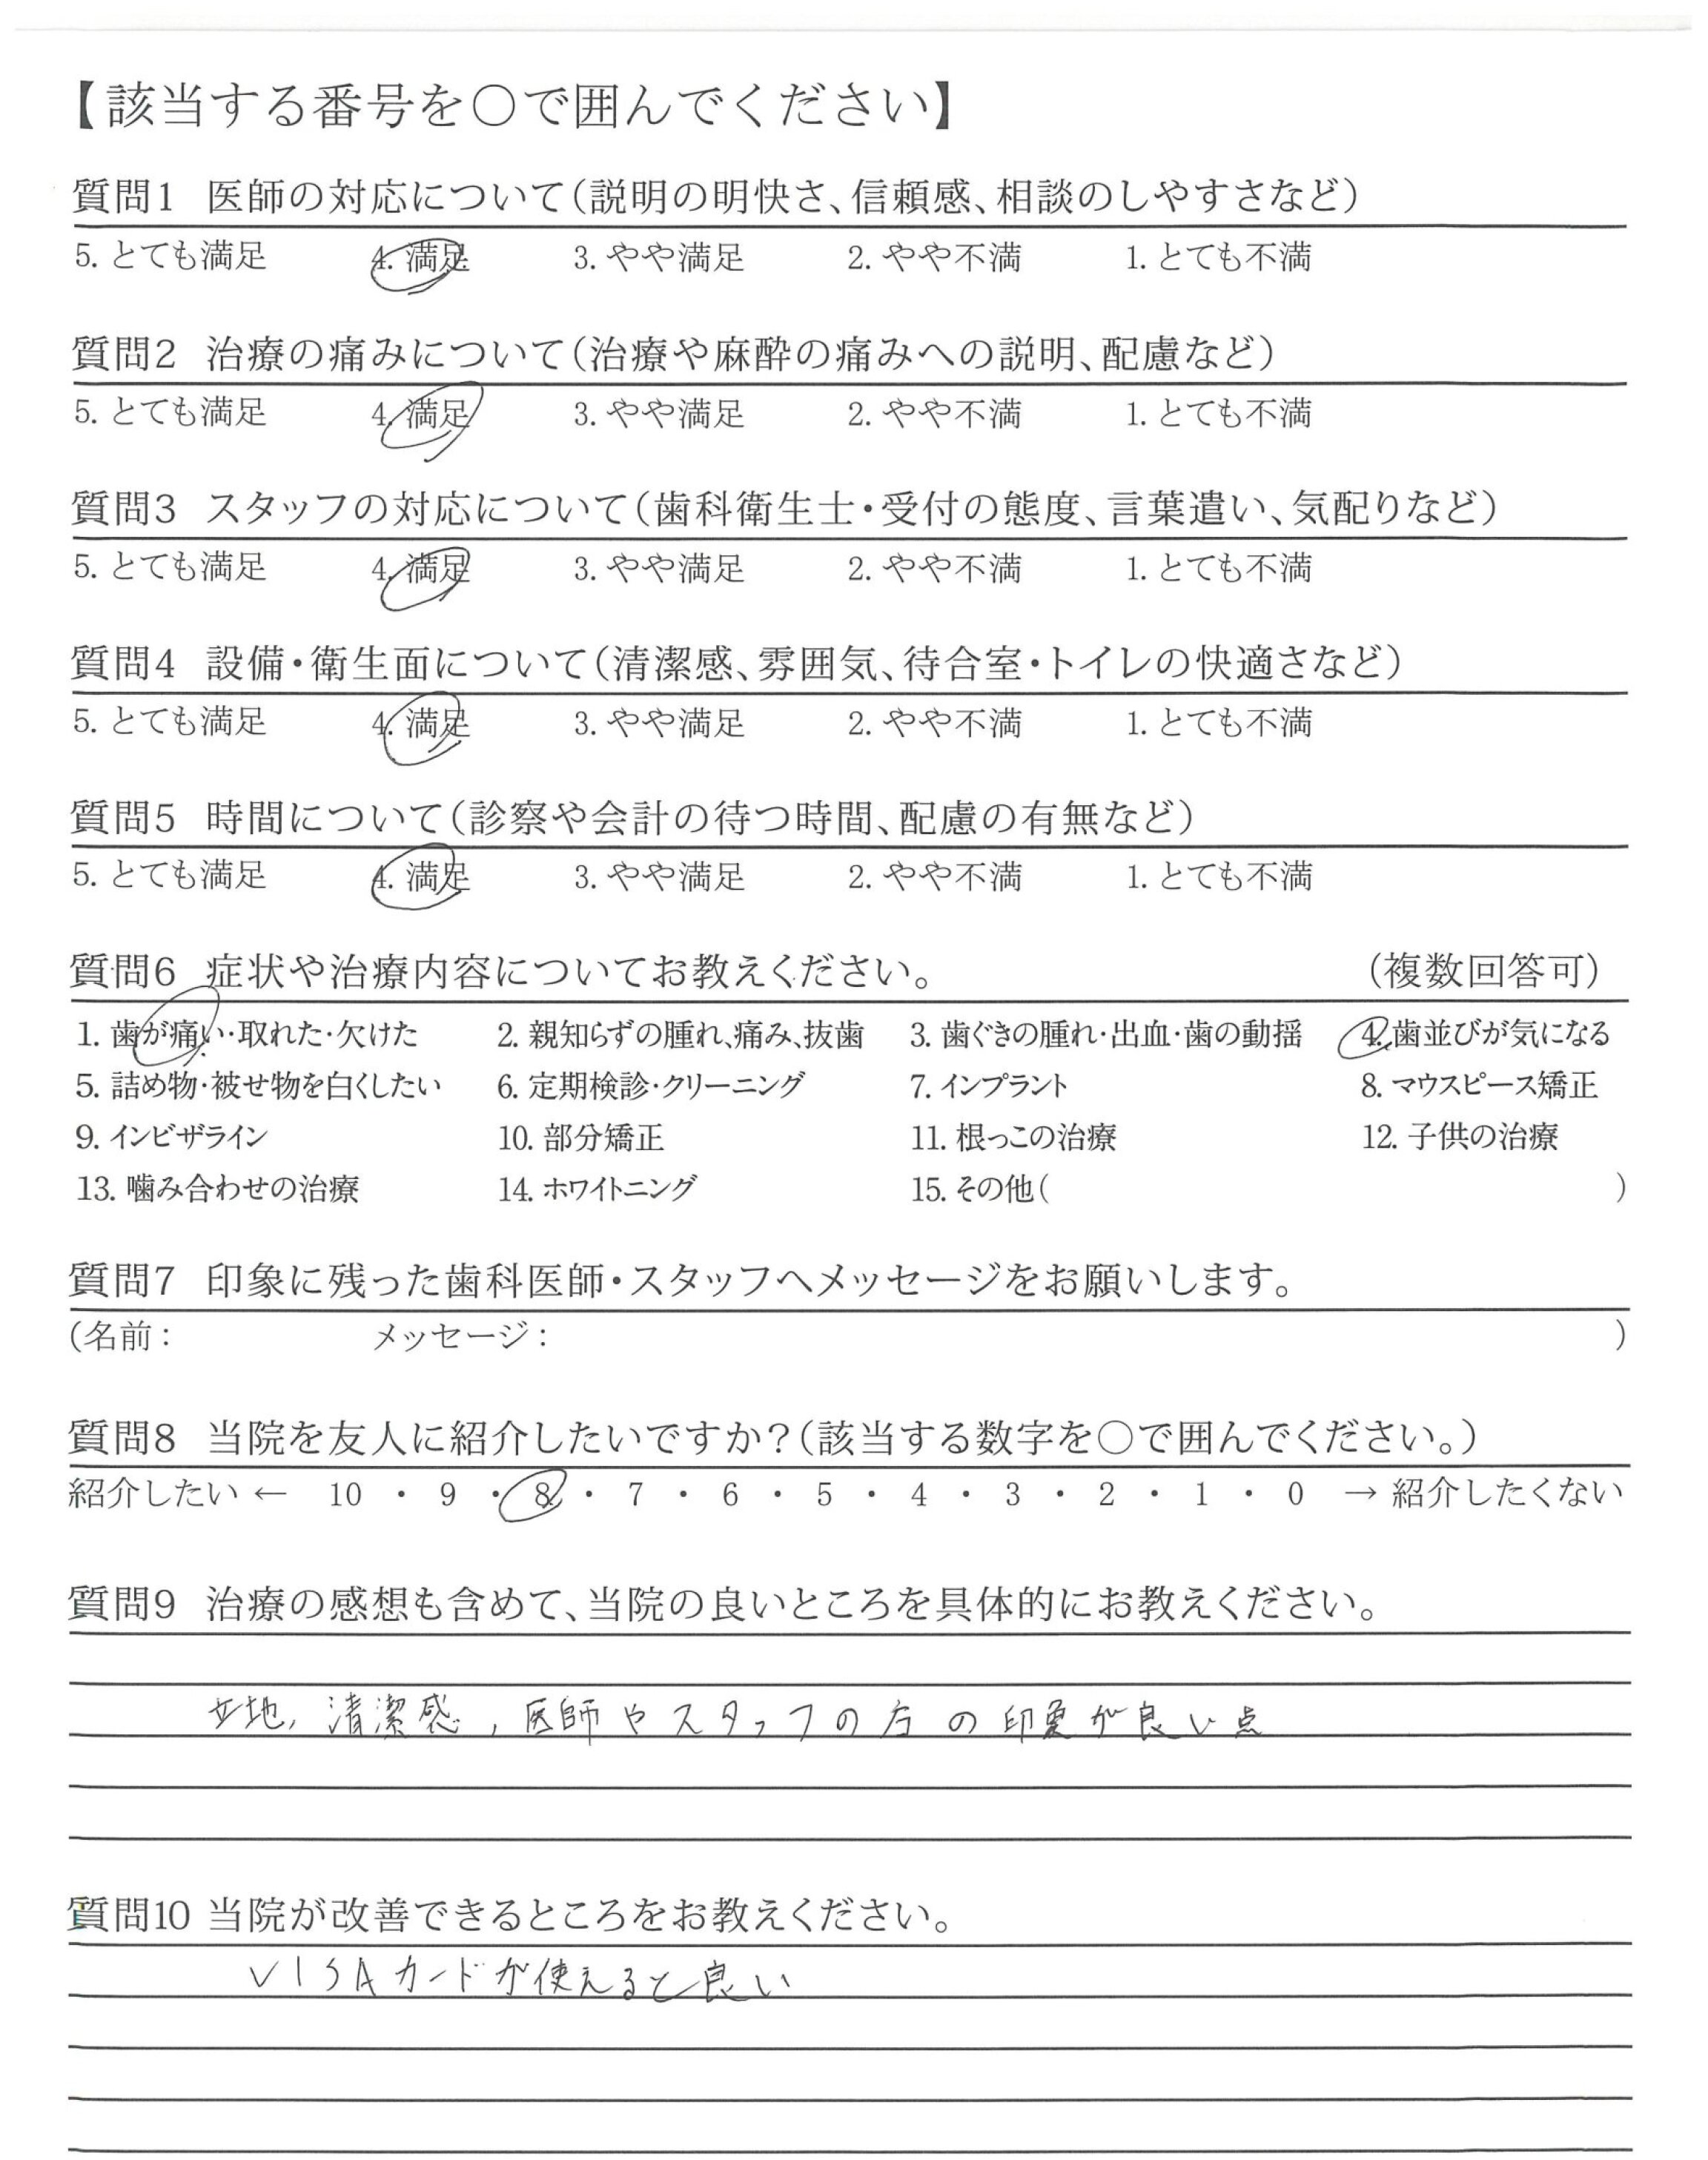 【該当する番号を○で囲んでください】
質問1 医師の対応について(説明の明快さ、信頼感、相談のしやすさなど)
5. とても満足 4. 満足 3. やや満足 2. やや不満 1. とても不満
質問2 治療の痛みについて(治療や麻酔の痛みへの説明、配慮など)
5. とても満足 4. 満足 3. やや満足 2. やや不満 1. とても不満
質問3 スタッフの対応について(歯科衛生士・受付の態度、言葉遣い、気配りなど)
5. とても満足 4. 満足 3. やや満足 2. やや不満 1. とても不満
質問4 設備・衛生面について(清潔感、雰囲気、待合室・トイレの快適さなど)
5. とても満足 4. 満足 3. やや満足 2. やや不満 1. とても不満
質問5 時間について(診察や会計の待つ時間、配慮の有無など)
5. とても満足 4. 満足 3. やや満足 2. やや不満 1. とても不満
質問6 症状や治療内容についてお教えください。 (複数回答可)
1. 歯が痛い・取れた・欠けた 2. 親知らずの腫れ、痛み、抜歯 3. 歯ぐきの腫れ・出血・歯の動揺 4. 歯並びが気になる
5. 詰め物・被せ物を白くしたい 6. 定期検診・クリーニング 7. インプラント 8. マウスピース矯正
9. インビザライン 10. 部分矯正 11. 根っこの治療 12. 子供の治療
13. 噛み合わせの治療 14. ホワイトニング 15. その他( )
質問7 印象に残った歯科医師・スタッフへメッセージをお願いします。
(名前: メッセージ: )
質問8 当院を友人に紹介したいですか?(該当する数字を○で囲んでください。)
紹介したい ← 10 ・ 9 ・ 8 ・ 7 ・ 6 ・ 5 ・ 4 ・ 3 ・ 2 ・ 1 ・ 0 → 紹介したくない
質問9 治療の感想も含めて、当院の良いところを具体的にお教えください。
立地, 清潔感, 医師やスタッフの方の印象が良い点
質問10 当院が改善できるところをお教えください。
VISAカードが使えると良い